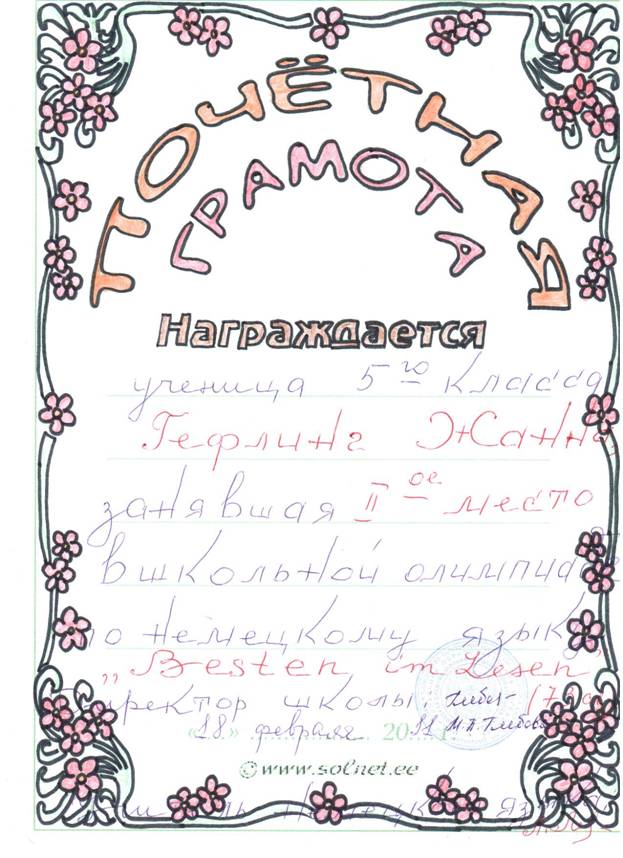 ПОЧЁТНАЯ
ГРАМОТА
Награждается
ученица 5 го класса
Гефлинг Жанна
занявшая II ое место
в школьной олимпиаде
по немецкому языку
„Besten im Lesen
Директор школы: М.П. Глебова
«18» февраля 2011
© www.solnet.ee
Учитель немецкого языка